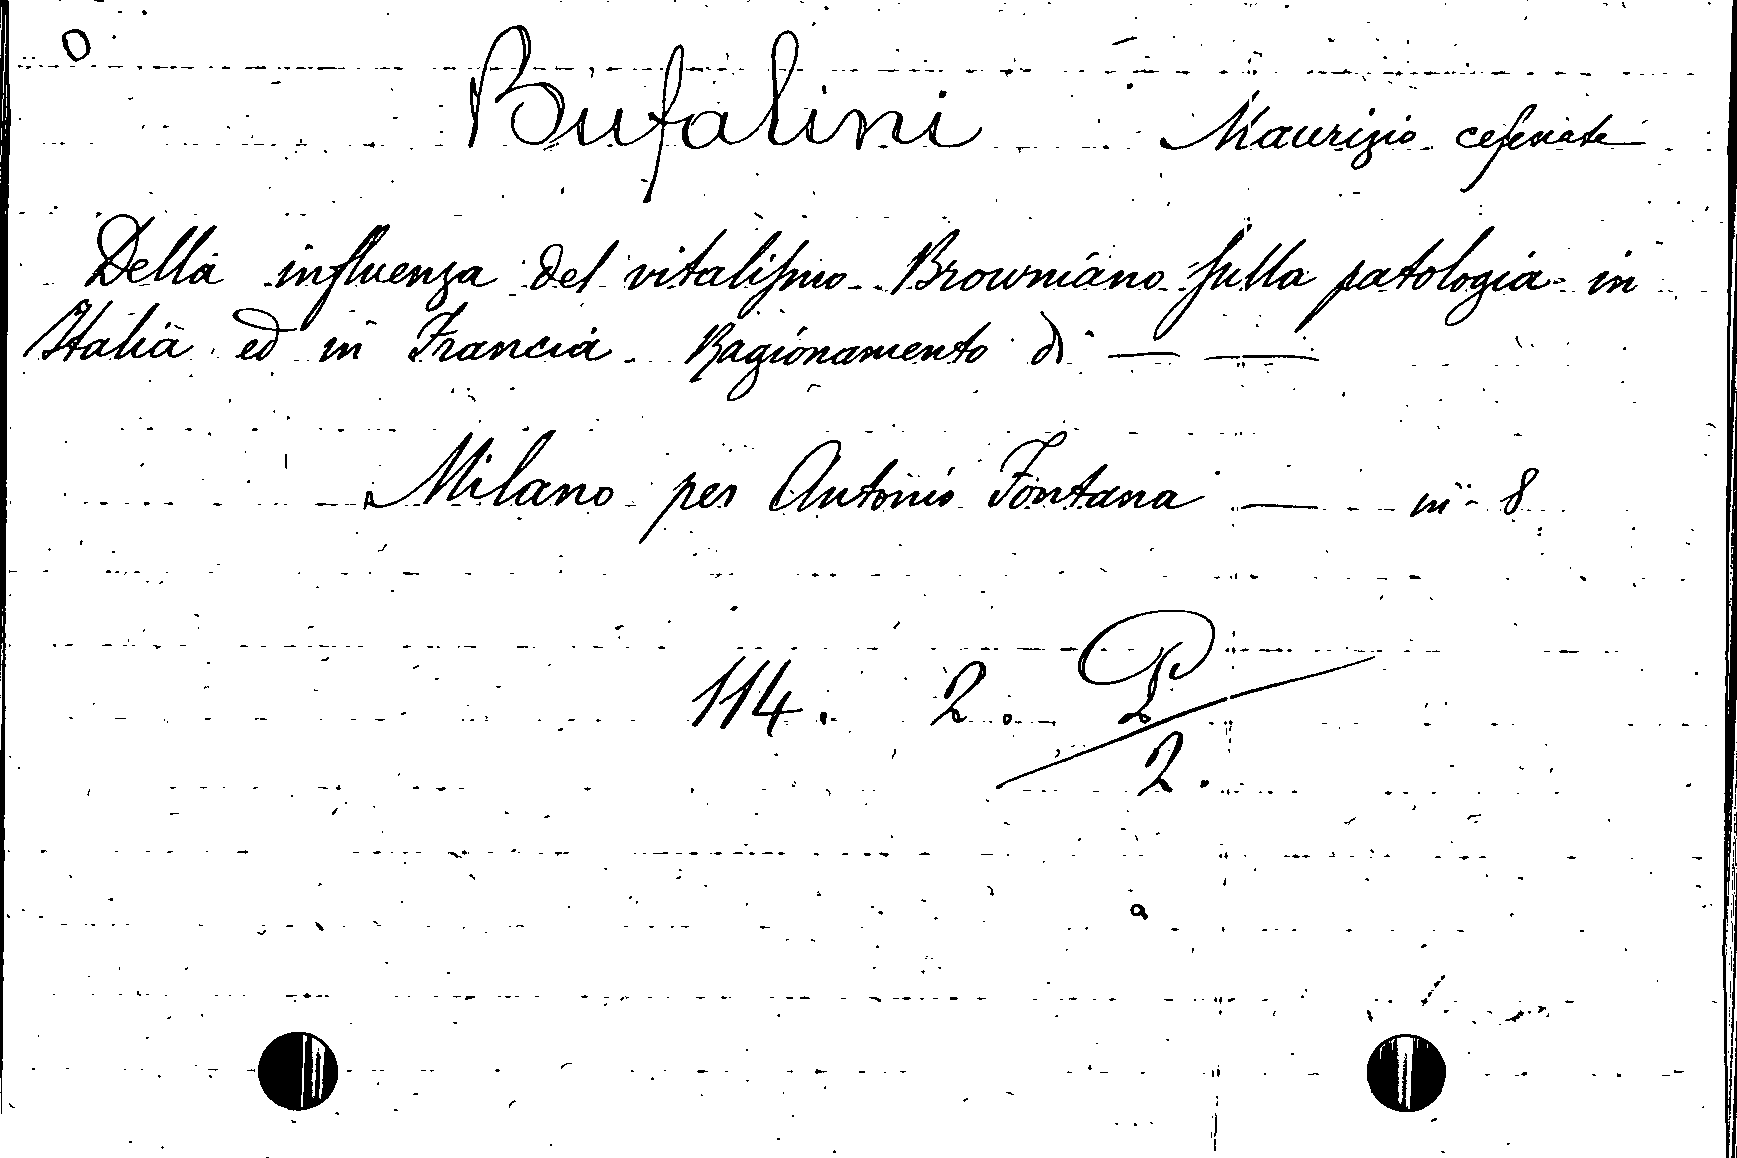 O
Bufalini Maurizio cesenate
Della influenza del vitalismo Browniano sulla patologia in
Italia ed in Francia. Ragionamento di — —
Milano per Antonio Fontana — in 8
114. 2. P
2.
a